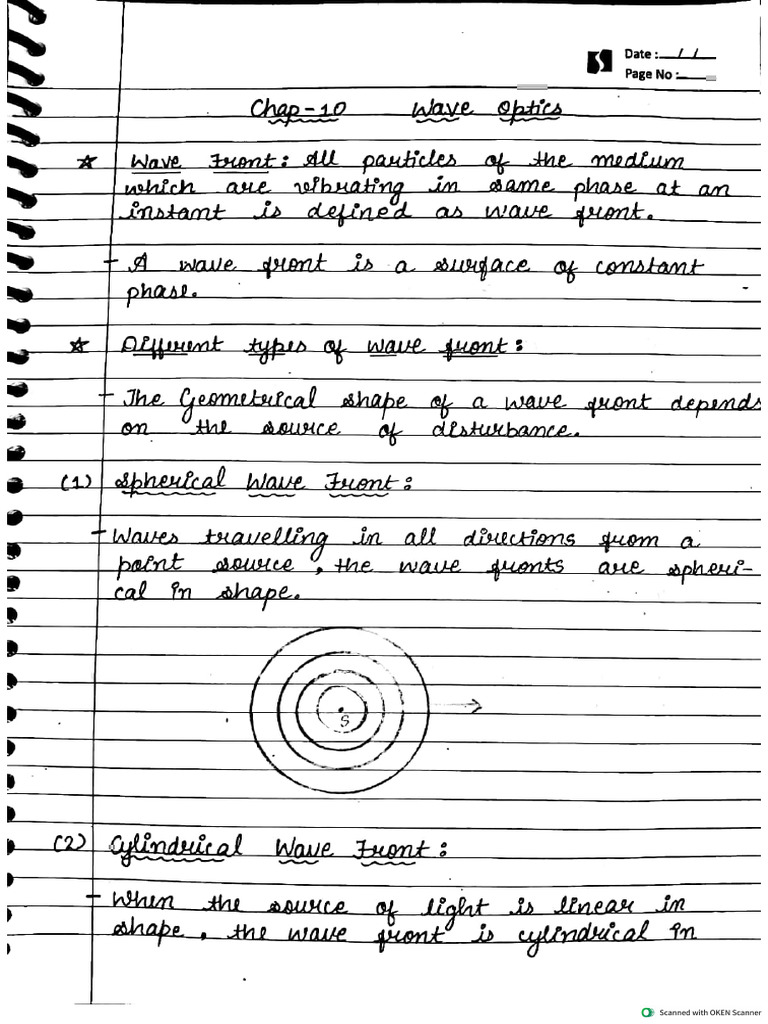 Date : / /
Page No :
Chap-10 Wave Optics
★ Wave Front: All particles of the medium
which are vibrating in same phase at an
instant is defined as wave front.
- A wave front is a surface of constant
phase.
★ Different types of wave front:
- The Geometrical shape of a wave front depends
on the source of disturbance.
(1) Spherical Wave Front:
- Waves travelling in all directions from a
point source, the wave fronts are spheri-
cal in shape.
S
(2) Cylindrical Wave Front:
- When the source of light is linear in
shape, the wave front is cylindrical in
Scanned with OKEN Scanner